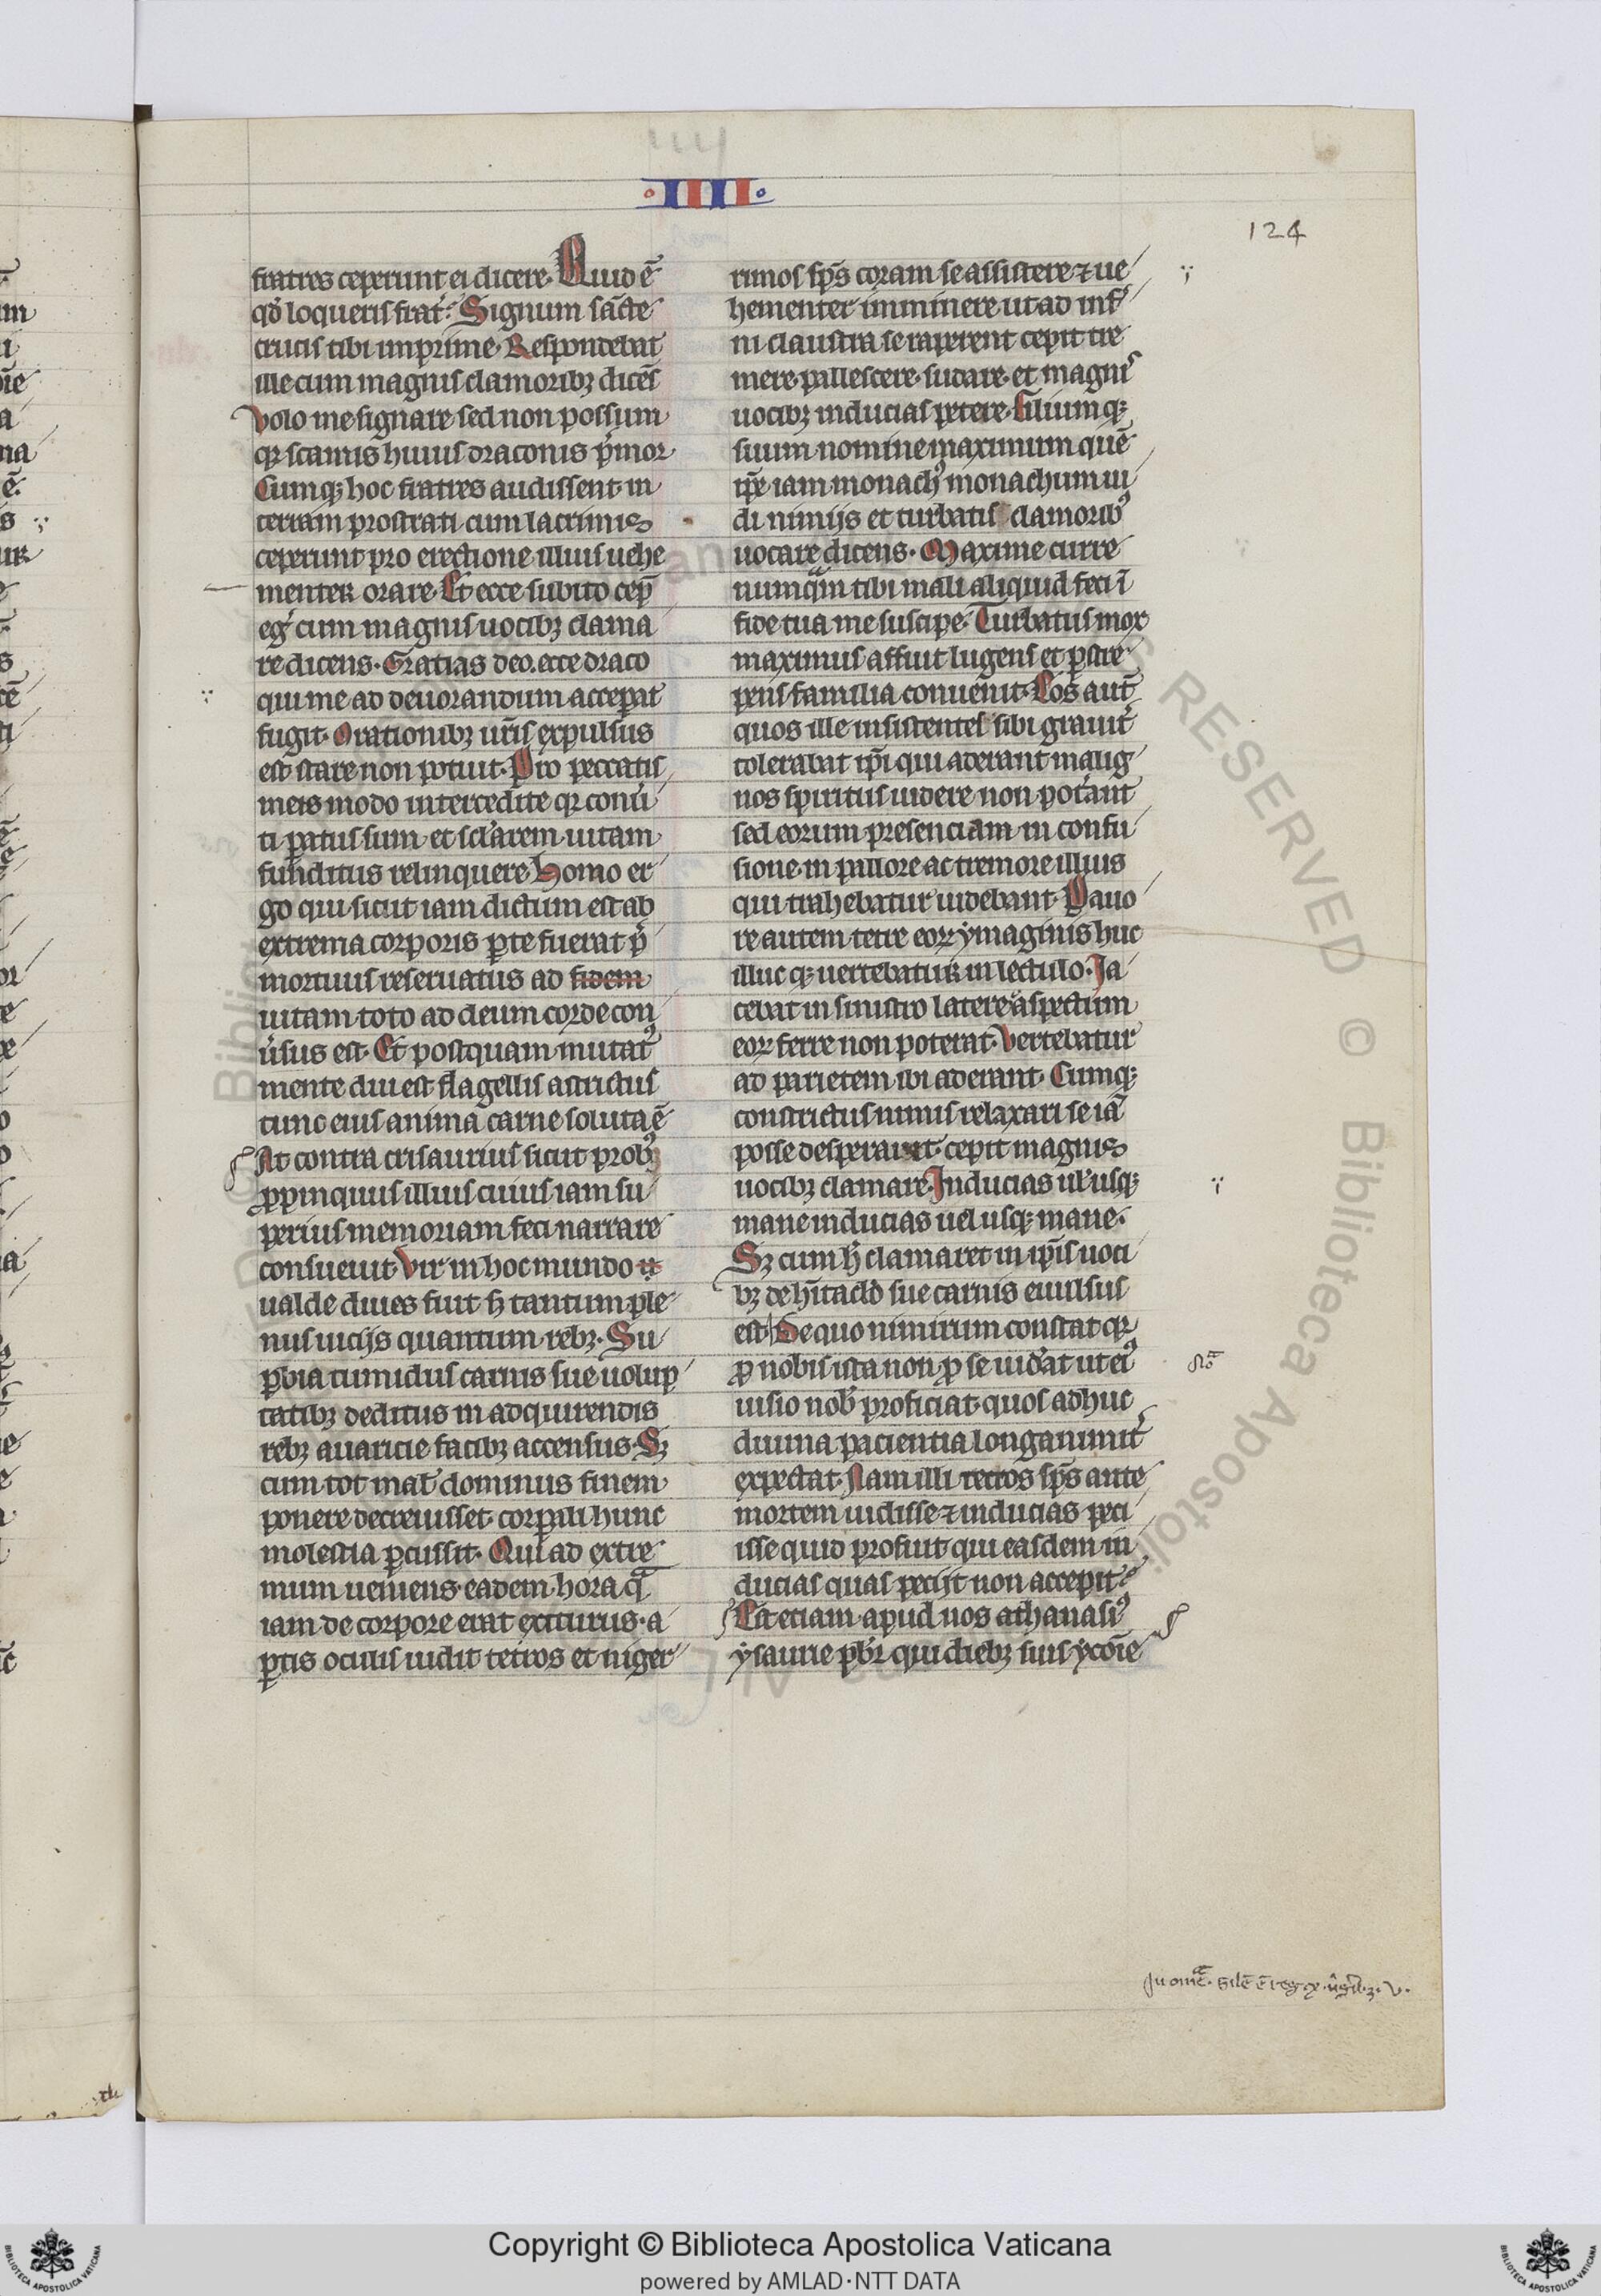 IIII
124
fratres ceperunt ei dicere. Quid ē
qd̓ loqueris frat̓. Signum sācte
crucis tibi imprime. Respondebat
ille cum magnis clamoribꝫ dicēs
Volo me signare sed non possum
qꝛ scamis huius draconis p̄mor
Cumqꝫ hoc fratres audissent in
terram prostrati cum lacrimis
ceperunt pro erectione illius uehe
menter orare. Et ecce subito cep̄
eg̓ cum magnis uocibꝫ clama
re dicens. Gratias deo. ecce draco
qui me ad deuorandum acceꝑat
fugit. Orationibꝫ ur̄is expulsus
est stare non potuit. Pro peccatis
meis modo intercedite qꝛ conu̓
ti ꝑatus sum et scl̓arem uitam
funditus relinquere. Homo er
go qui sicut iam dictum est ab
extrema corporis ꝑte fuerat p̄
mortuus reseruatus ad fidem
uitam toto ad deum corde con
u̓sus est. Et postquam mutat᾽
mente diu est flagellis astrictus
tunc eius anima carne soluta ē
At contra crisaurius sicut prob᾽
ꝓpinquus illius cuius iam su
perius memoriam feci narrare
consueuit Vir in hoc mundo tt
ualde diues fuit sꝫ tantum ple
nus uicijs quantum rebꝫ. Su
ꝑbia tumidus carnis sue uolup
tatibꝫ deditus in adquirendis
rebꝫ auaricie facibꝫ accensus. Sꝫ
cum tot mal̓ dominus finem
ponere decreuisset corꝑali hunc
molestia ꝑcussit. Qui ad extre
mum ueniens eadem hora qᵃ
iam de corpore erat exiturus. a
ꝑtis oculis uidit tetros et niger
rimos sp̄s coram se assistere ⁊ ue
hementer imminere ut ad inf̓
ni claustra se raperent cepit tre
mere. pallescere. sudare. et magnis
uocibꝫ inducias petere. filiumqꝫ
suum nomine maximum quē
ip̄e iam monach᾽ monachum ui
di nimijs et turbatis clamorib᾽
uocare dicens. Maxime curre
numqᵃm tibi mali aliquid feci ī
fide tua me suscipe. Turbatus mox
maximus affuit lugens et ꝑstre
pens familia conuenit. Eos aut̄
quos ille insistentes sibi grauit̓
tolerabat ip̄i qui aderant malig
nos spiritus uidere non pot̓ant
sed eorum presenciam in confu
sione in pallore ac tremore illius
qui trahebatur uidebant. Pauo
re autem tetre eoꝝ ymaginis huc
illucqꝫ uertebatur in lectulo. Ja
cebat in sinistro latere aspectum
eoꝝ ferre non poterat. Vertebatur
ad parietem ibi aderant. Cumqꝫ
constrictus nimis relaxari se iā
posse desperauit. cepit magnis
uocibꝫ clamare. Inducias ul̓ usqꝫ
mane inducias uel usqꝫ mane.
Sꝫ cum h̓ clamaret in ip̄is uoci
bꝫ de hītaclo sue carnis euulsus
est. De quo nimirum constat qꝛ
ꝓ nobis ista non ꝓ se uid̓at ut ei᾽
uisio nob̓ proficiat quos adhuc
diuina paciencia longanimit̓
expectat. Nam illi tetros sp̄s ante
mortem uidisse ⁊ inducias peci
isse quid profuit qui easdem in
ducias quas pecijt non accepit.
Est etiam apud nos athanasi᾽
ysaurie pb̓r qui diebꝫ suis ycōie